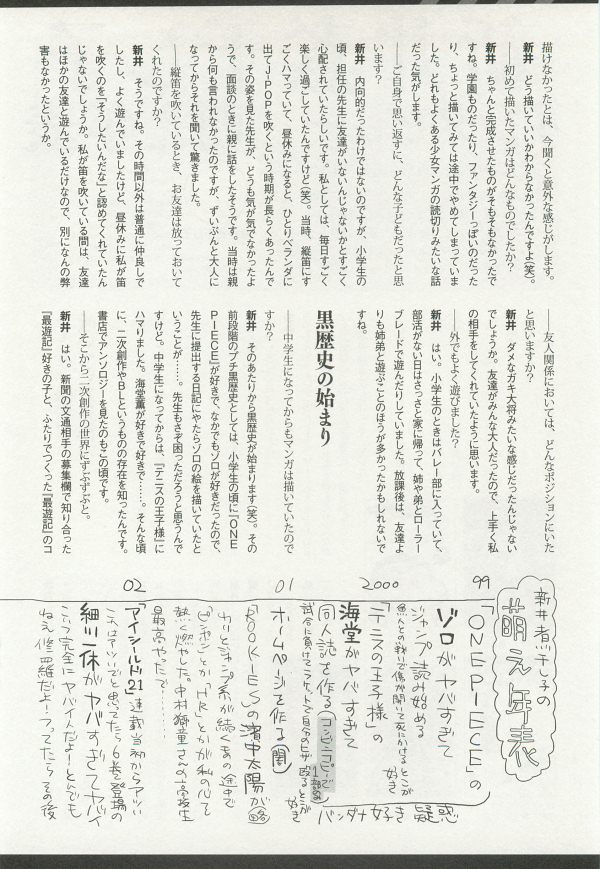 描けなかったとは、今聞くと意外な感じがします。
新井　どう描いていいかわからなかったんですよ(笑)。
――初めて描いたマンガはどんなものでしたか?
新井　ちゃんと完成させたものがそもそもなかったで
すね。学園ものだったり、ファンタジーっぽいのだった
り、ちょっと描いてみては途中でやめてしまっていま
した。どれもよくある少女マンガの読切りみたいな話
だった気がします。
――ご自身で思い返すに、どんな子どもだったと思
います?
新井　内向的だったわけではないのですが、小学生の
頃、担任の先生に友達がいないんじゃないかとすごく
心配されていたらしいです。私としては、毎日すごく
楽しく過ごしていたんですけど(笑)。当時、縦笛にす
ごくハマっていて、昼休みになると、ひとりベランダに
出てJ-POPを吹くという時期が長らくあったんで
す。その姿を見た先生が、どうも気が気でなかったよ
うで、面談のときに親に話をしたそうです。当時は親
から何も言われなかったのですが、ずいぶんと大人に
なってからそれを聞いて驚きました。
――縦笛を吹いているとき、お友達は放っておいて
くれたのですか?
新井　そうですね。その時間以外は普通に仲良しで
したし、よく遊んでいましたけど、昼休みに私が笛
を吹くのを「そうしたいんだな」と認めてくれていたん
じゃないでしょうか。私が笛を吹いている間は、友達
はほかの友達と遊んでいるだけなので、別になんの弊
害もなかったというか。
――友人関係においては、どんなポジションにいた
と思いますか?
新井　ダメなガキ大将みたいな感じだったんじゃない
でしょうか。友達がみんな大人だったので、上手く私
の相手をしてくれていたように思います。
――外でもよく遊びました?
新井　はい。小学生のときはバレー部に入っていて、
部活がない日はさっさと家に帰って、姉や弟とローラー
ブレードで遊んだりしていました。放課後は、友達よ
りも姉弟と遊ぶことのほうが多かったかもしれないで
すね。
黒歴史の始まり
――中学生になってからもマンガは描いていたので
すか?
新井　そのあたりから黒歴史が始まります(笑)。その
前段階のプチ黒歴史としては、小学生の頃に『ONE
PIECE』が好きで、なかでもゾロが好きだったので、
先生に提出する日記にやたらゾロの絵を描いていたと
いうことが……。先生もさぞ困っただろうと思うんで
すけど。中学生になってからは、『テニスの王子様』に
ハマりました。海堂薫が好きで好きで……。そんな頃
に、二次創作やBLというものの存在を知ったんです。
書店でアンソロジーを見たのもこの頃です。
――そこから二次創作の世界にずぶずぶと。
新井　はい。新聞の文通相手の募集欄で知り合った
『最遊記』好きの子と、ふたりでつくった『最遊記』のコ
新井煮干し子の
萌え年表
99
「ONEPIECE」の
ゾロがヤバすぎて
ジャンプ読み始める
魚人との戦いで傷が開いて死にかけるとこが
好き
2000
「テニスの王子様」の
海堂がヤバすぎて
同人誌を作る(コンビニコピーで
1部のみ
試合に負けてラケットで自分のヒザ殴るとこが
好き
バンダナ好き疑惑
01
ホームページを作る(閉)
「ROOKIES」の濱中太陽が(略)
わりとジャンプ系が続くあの途中で
ピンポンとか「HR」とかが私の心を
熱く燃やした。中村獅童さんの高校生
最高やった…
02
「アイシールド21」連載当初からアツい
これはアツいぞと思ってたら6巻で登場の
細川一休がヤバすぎてヤバイ
こいつ完全にヤバイんだよ!とんでも
ねえ修羅だよ!つってたらその後